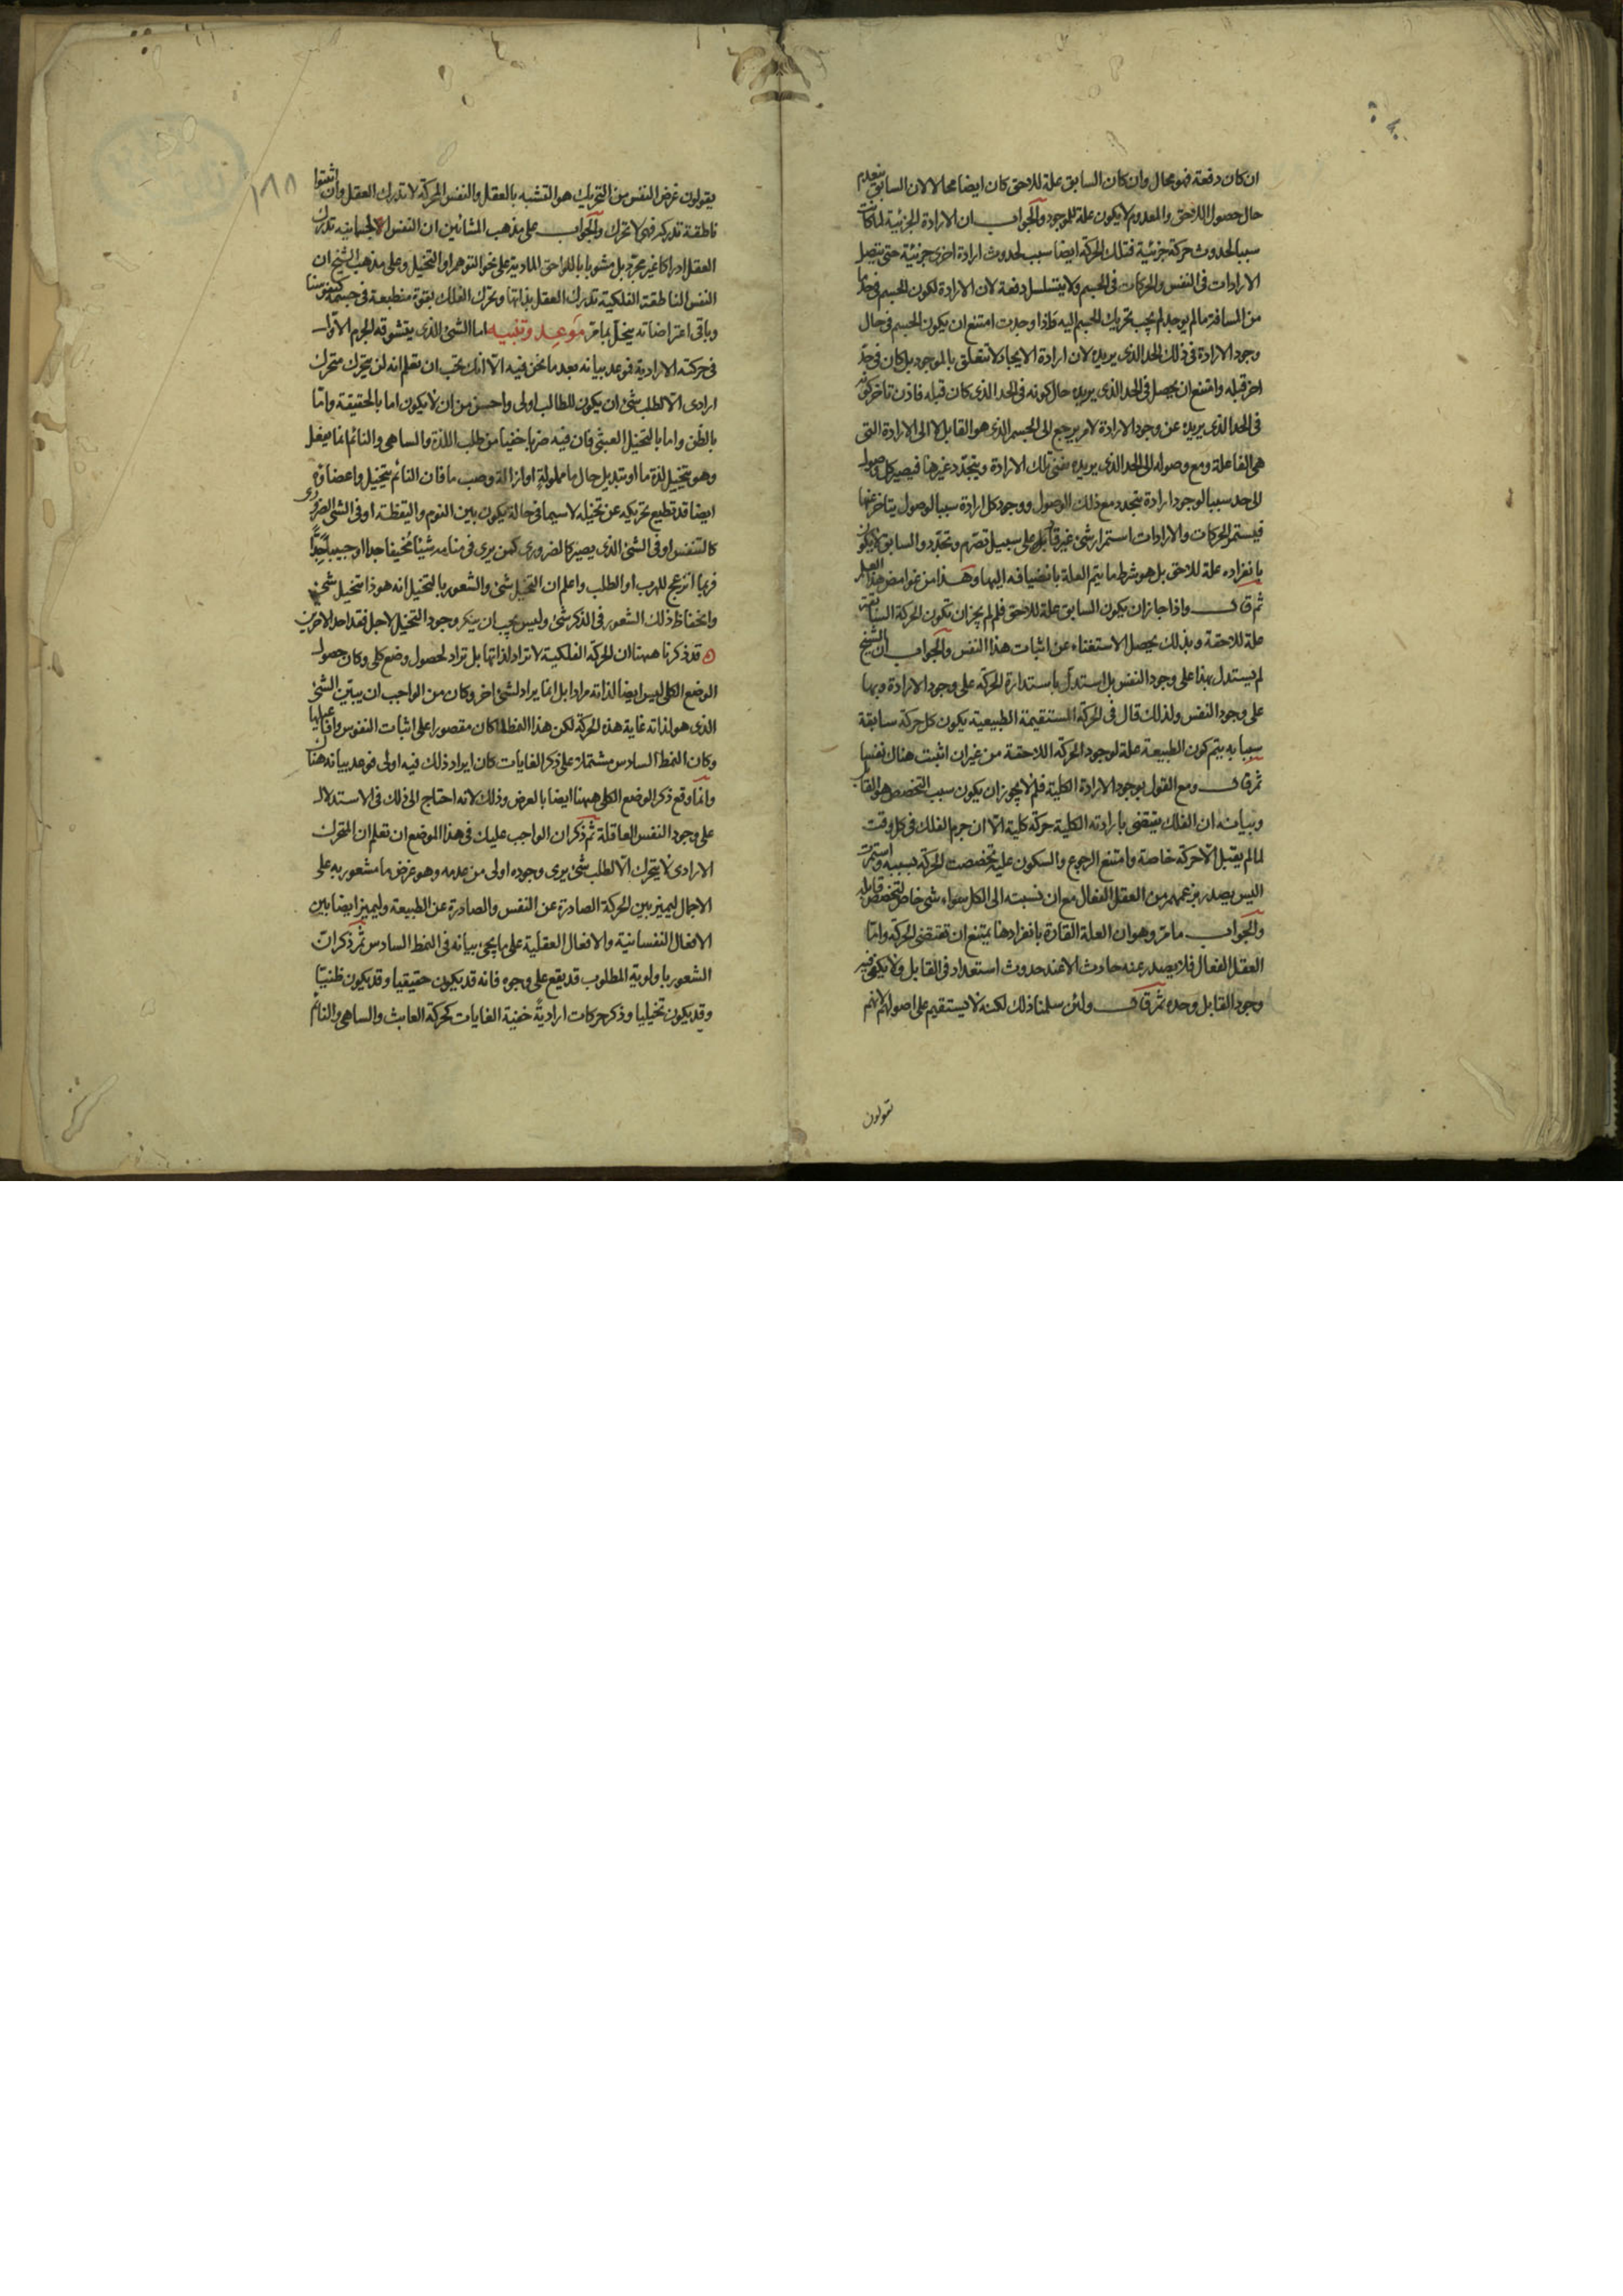 ان كان دفعة فهو محال وان كان السابق علة للاحق كان ايضا محالا لان السابق ينعدم
حال حصول اللاحق والمعدوم لا يكون علة للموجود والجواب ان الارادة الجزئية لما كانت
سببا لحدوث حركة جزئية فتلك الحركة ايضا سبب لحدوث ارادة اخرى جزئية حتى يتصل
الارادات فى النفس والحركات فى الجسم ولا يتسلسل دفعة لان الارادة لكون الجسم فى حد ما
من المسافة ما لم يوجد لم يجب تحريك الجسم اليه واذا وجدت امتنع ان يكون الجسم فى حال
وجود الارادة فى ذلك الحد الذى يريده لان ارادة الايجاد لا تتعلق بالموجود بل كان فى حد
اخر قبله وامتنع ان يحصل فى الحد الذى يريده حال كونه فى الحد الذى كان قبله فاذن تاخر كونه
فى الحد الذى يريده عن وجود الارادة لامر يرجع الى الجسم الذى هو القابل لا الى الارادة التى
هى الفاعلة ومع وصوله الى الحد الذى يريده تفنى تلك الارادة ويتجدد غيرها فيصير كل وصول
الى حد سببا لوجود ارادة يتجدد مع ذلك الوصول ووجود كل ارادة سببا لوصول يتاخر عنها
فيستمر الحركات والارادات استمرار شئ غير قار بل على سبيل تصرم وتجدد والسابق لا يكون
بانفراده علة للاحق بل هو شرط ما يتم العلة بانضيافه اليها وهذا من غوامض هذا العلم
ثم قال واذا جاز ان يكون السابق علة للاحق فلم لم يجز ان تكون الحركة السابقة
علة للاحقة وبذلك يحصل الاستغناء عن اثبات هذا النفس والجواب ان الشيخ
لم يستدل بهذا على وجود النفس بل استدل باستدارة الحركة على وجود الارادة وبها
على وجود النفس ولذلك قال فى الحركة المستقيمة الطبيعية يكون كل حركة سابقة
سببا به يتم كون الطبيعة علة لوجود الحركة اللاحقة من غير ان اثبت هناك نفسا
ثم قال ومع القول بوجود الارادة الكلية فلم لا يجوز ان يكون سبب التخصص هو القابل
وبيانه ان الفلك يقتضى بارادته الكلية حركة كلية الا ان جرم الفلك فى كل وقت
لما لم يقبل الا حركة خاصة وامتنع الرجوع والسكون عليه تخصصت الحركة بسببه واستمرت
اليس يصدر بزعمهم من العقل الفعال مع ان نسبته الى الكل سواء شئ خاص لتخصص قابله
والجواب ما مر وهو ان العلة القارة بانفرادها يمتنع ان تقتضى الحركة واما
العقل الفعال فلا يصدر عنه حادث الا عند حدوث استعداد فى القابل ولا يكفى فيه
وجود القابل وحده ثم قال ولئن سلمنا ذلك لكنه لا يستقيم على اصولهم لانهم
يقولون
١٨٨
يقولون غرض النفس من التحريك هو التشبه بالعقل والنفس المحركة لا تدرك العقل وان اثبتوا
ناطقة تدركه فهى لا تحرك والجواب على مذهب المشائين ان النفس الجسمانيه تدرك
العقل ادراكا غير مجرد بل مشوبا باللواحق المادية على نحو التوهم او التخيل وعلى مذهب الشيخ ان
النفس الناطقة الفلكية تدرك العقل بذاتها وتحرك الفلك بقوة منطبعة فى جسمه كنفوسنا
وباقى اعتراضاته ينحل بما مر موعد وتنبيه اما الشئ الذى يتشوقه الجرم الاول
فى حركته الارادية فوعد بيانه بعد ما نحن فيه الا انك يجب ان تعلم انه لن يتحرك متحرك
ارادى الا لطلب شئ ان يكون للطالب اولى واحسن من ان لا يكون اما بالحقيقة واما
بالظن واما بالتخيل العبثى فان فيه ضربا خفيا من طلب اللذة والساهى والنائم انما يفعل
وهو يتخيل لذة ما او تبديل حال ما مملولة او ازالة وصب ما فان النائم يتخيل واعضاؤه
ايضا قد تطيع تحريكه عن تخيله لا سيما فى حالة يكون بين النوم واليقظة او فى الشئ الضرورى
كالتنفس او فى الشئ الذى يصير كالضرورى كمن يرى فى منامه شيئا مخيفا جدا او حبيبا جدا
فربما انزعج للهرب او الطلب واعلم ان التخيل شئ والشعور بالتخيل انه هوذا تتخيل شئ
وانحفاظ ذلك الشعور فى الذكر شئ وليس يجب ان ينكر وجود التخيل لاجل فقد احد الاخرين
قد ذكرنا ههنا ان الحركة الفلكية لا تراد لذاتها بل تراد لحصول وضع كلى وكان حصول
الوضع الكلى ليس ايضا لذاته مرادا بل انما يراد لشئ اخر وكان من الواجب ان يبين الشئ
الذى هو لذاته غاية هذه الحركة لكن هذا النمط لما كان مقصورا على اثبات النفوس وافعالها
وكان النمط السادس مشتملا على ذكر الغايات كان ايراد ذلك فيه اولى فوعد بيانه هناك
وانما وقع ذكر الوضع الكلى ههنا ايضا بالعرض وذلك لانه احتاج الى ذلك فى الاستدلال
على وجود النفس العاقلة ثم ذكر ان الواجب عليك فى هذا الموضع ان تعلم ان المتحرك
الارادى لا يتحرك الا لطلب شئ يرى وجوده اولى من عدمه وهو غرض ما مشعور به على
الاجمال ليميز بين الحركة الصادرة عن النفس والصادرة عن الطبيعة وليميز ايضا بين
الافعال النفسانية والافعال العقلية على ما يجئ بيانه فى النمط السادس ثم ذكر ان
الشعور باولوية المطلوب قد يقع على وجوه فانه قد يكون حقيقيا وقد يكون ظنيا
وقد يكون تخيليا وذكر حركات ارادية خفية الغايات كحركة العابث والساهى والنائم